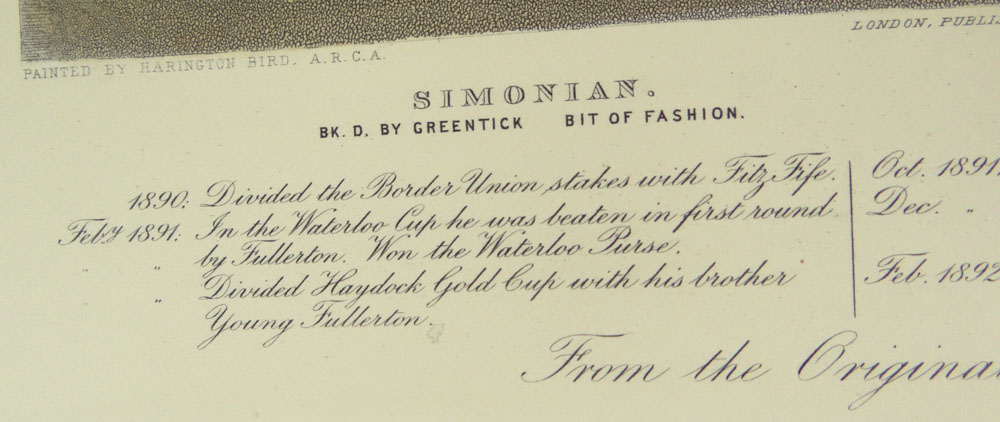 LONDON, PUBLIS
PAINTED BY HARINGTON BIRD, A.R.C.A.
SIMONIAN.
BK. D. BY GREENTICK BIT OF FASHION.
1890: Divided the Border Union stakes with Fitz Fife.
Feby 1891: In the Waterloo Cup he was beaten in first round
by Fullerton. Won the Waterloo Purse.
" " Divided Haydock Gold Cup with his brother
Young Fullerton.
Oct. 1891.
Dec. "
Feb. 1892
From the Original